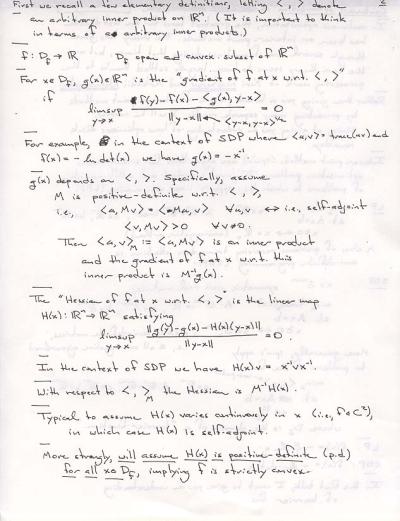 First we recall a few elementary definitions, letting < , > denote
an arbitrary inner product on ℝⁿ. (It is important to think
in terms of arbitrary inner products.)
f: D_f → ℝ D_f open and convex subset of ℝⁿ
For x∈D_f, g(x)∈ℝⁿ is the "gradient of f at x w.r.t. < , >"
if
limsup_{y→x} (f(y)-f(x)-<g(x),y-x>) / ||y-x|| = 0
<y-x,y-x>^{1/2}
For example, in the context of SDP where <u,v> = trace(uv) and
f(x) = -ln det(x) we have g(x) = -x⁻¹.
g(x) depends on < , >. Specifically, assume
M is positive-definite w.r.t. < , >,
i.e., <u,Mv> = <Mu,v> ∀u,v ↔ i.e., self-adjoint
<v,Mv> > 0 ∀v≠0.
Then <u,v>_M := <u,Mv> is an inner product
and the gradient of f at x w.r.t. this
inner product is M⁻¹g(x).
The "Hessian of f at x w.r.t. < , >" is the linear map
H(x): ℝⁿ → ℝⁿ satisfying
limsup_{y→x} ||g(y)-g(x)-H(x)(y-x)|| / ||y-x|| = 0.
In the context of SDP we have H(x)v = x⁻¹vx⁻¹.
With respect to < , >_M the Hessian is M⁻¹H(x).
Typical to assume H(x) varies continuously in x (i.e., f∈C²),
in which case H(x) is self-adjoint.
More strongly, will assume H(x) is positive-definite (p.d.)
for all x∈D_f, implying f is strictly convex.